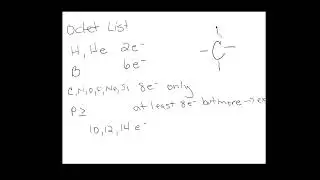 Octet List
H, He 2e⁻
B 6e⁻
C, N, O, F, Na, Si 8e⁻ only
P ≥ at least 8e⁻ but more →
10, 12, 14 e⁻
C